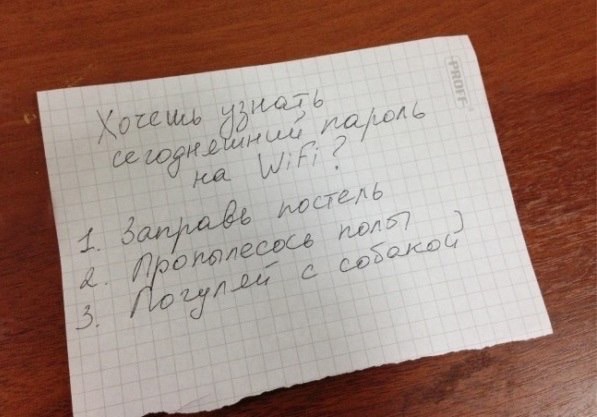 PROFF
Хочешь узнать
сегодняшний пароль
на WiFi?
1. Заправь постель
2. Пропылесось полы
3. Погуляй с собакой)